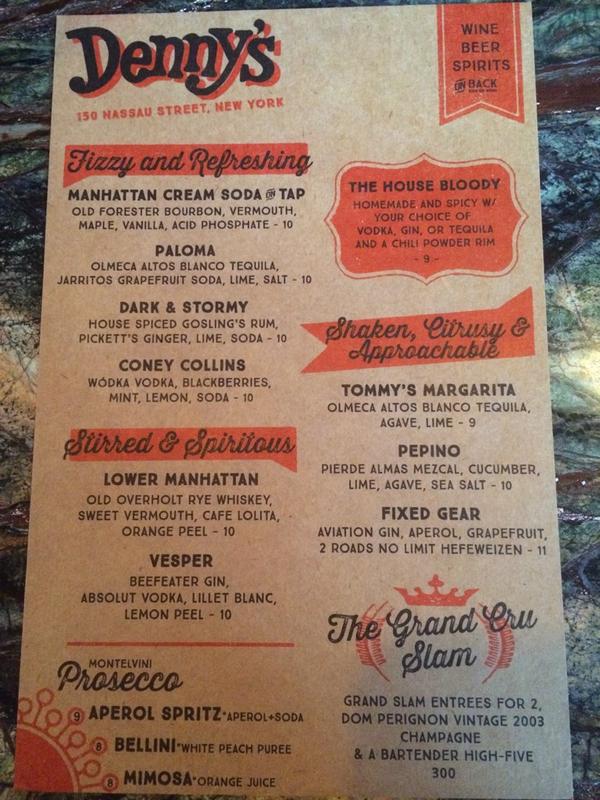 Denny's
150 NASSAU STREET, NEW YORK
WINE
BEER
SPIRITS
ON BACK
Fizzy and Refreshing
MANHATTAN CREAM SODA ON TAP
OLD FORESTER BOURBON, VERMOUTH,
MAPLE, VANILLA, ACID PHOSPHATE - 10
PALOMA
OLMECA ALTOS BLANCO TEQUILA,
JARRITOS GRAPEFRUIT SODA, LIME, SALT - 10
DARK & STORMY
HOUSE SPICED GOSLING'S RUM,
PICKETT'S GINGER, LIME, SODA - 10
CONEY COLLINS
WÓDKA VODKA, BLACKBERRIES,
MINT, LEMON, SODA - 10
Stirred & Spiritous
LOWER MANHATTAN
OLD OVERHOLT RYE WHISKEY,
SWEET VERMOUTH, CAFE LOLITA,
ORANGE PEEL - 10
VESPER
BEEFEATER GIN,
ABSOLUT VODKA, LILLET BLANC,
LEMON PEEL - 10
MONTELVINI
Prosecco
9 APEROL SPRITZ*APEROL+SODA
8 BELLINI*WHITE PEACH PUREE
8 MIMOSA*ORANGE JUICE
THE HOUSE BLOODY
HOMEMADE AND SPICY W/
YOUR CHOICE OF
VODKA, GIN, OR TEQUILA
AND A CHILI POWDER RIM
- 9 -
Shaken, Citrusy &
Approachable
TOMMY'S MARGARITA
OLMECA ALTOS BLANCO TEQUILA,
AGAVE, LIME - 9
PEPINO
PIERDE ALMAS MEZCAL, CUCUMBER,
LIME, AGAVE, SEA SALT - 10
FIXED GEAR
AVIATION GIN, APEROL, GRAPEFRUIT,
2 ROADS NO LIMIT HEFEWEIZEN - 11
The Grand Cru
Slam
GRAND SLAM ENTREES FOR 2,
DOM PERIGNON VINTAGE 2003
CHAMPAGNE
& A BARTENDER HIGH-FIVE
300